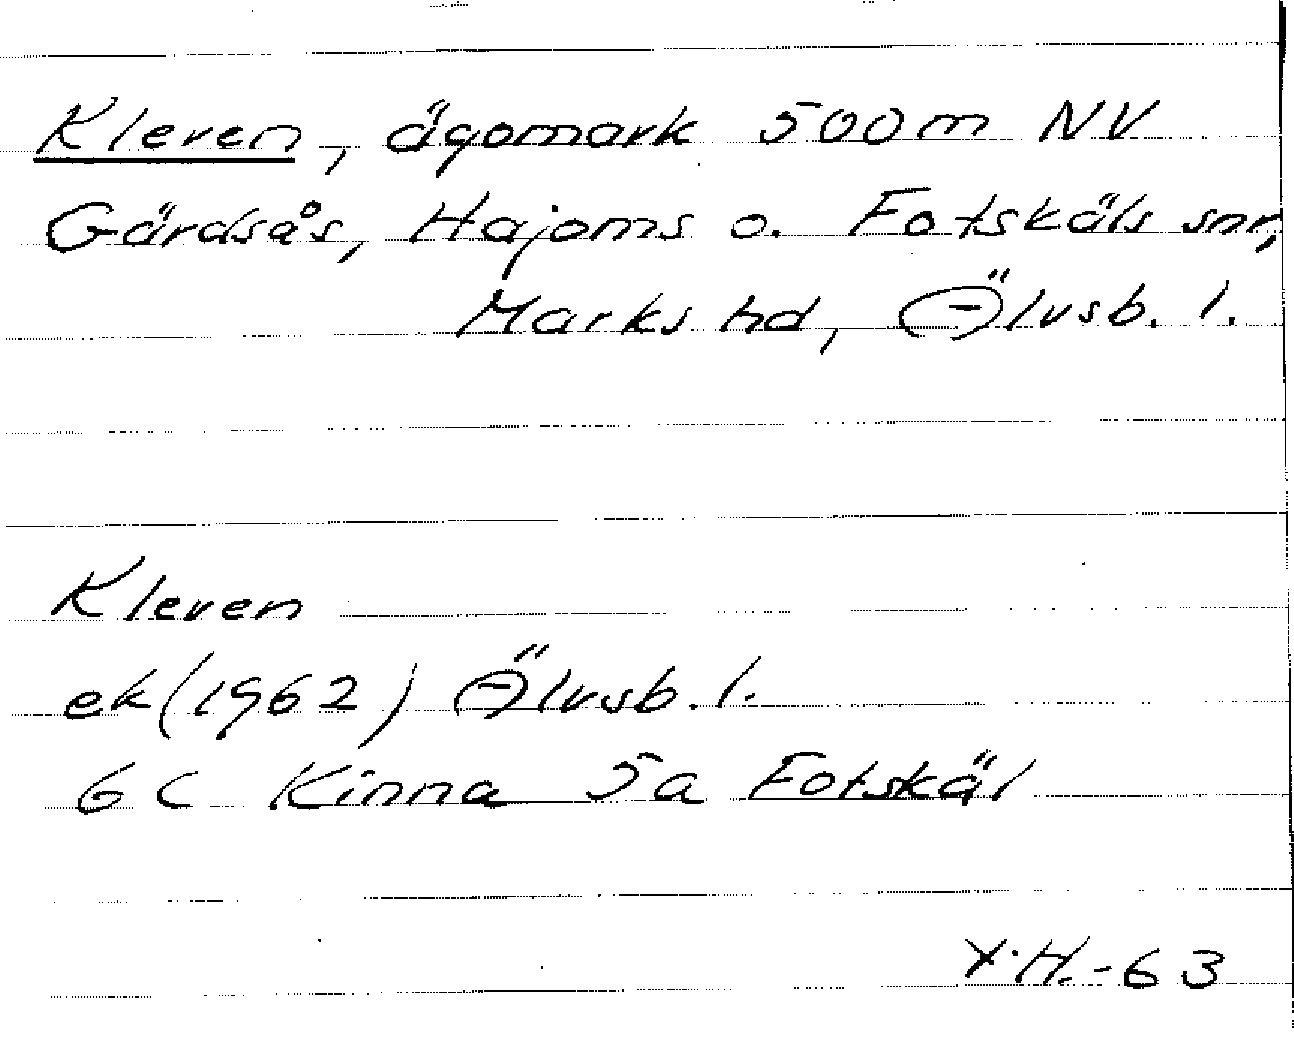 Kleven, ägomark 500m NV
Gärdsås, Hajoms o. Fotskäls snr,
Marks hd, Älvsb. l.
Kleven
ek(1962) Älvsb. l.
6C Kinna 5a Fotskäl
Y.H.-63